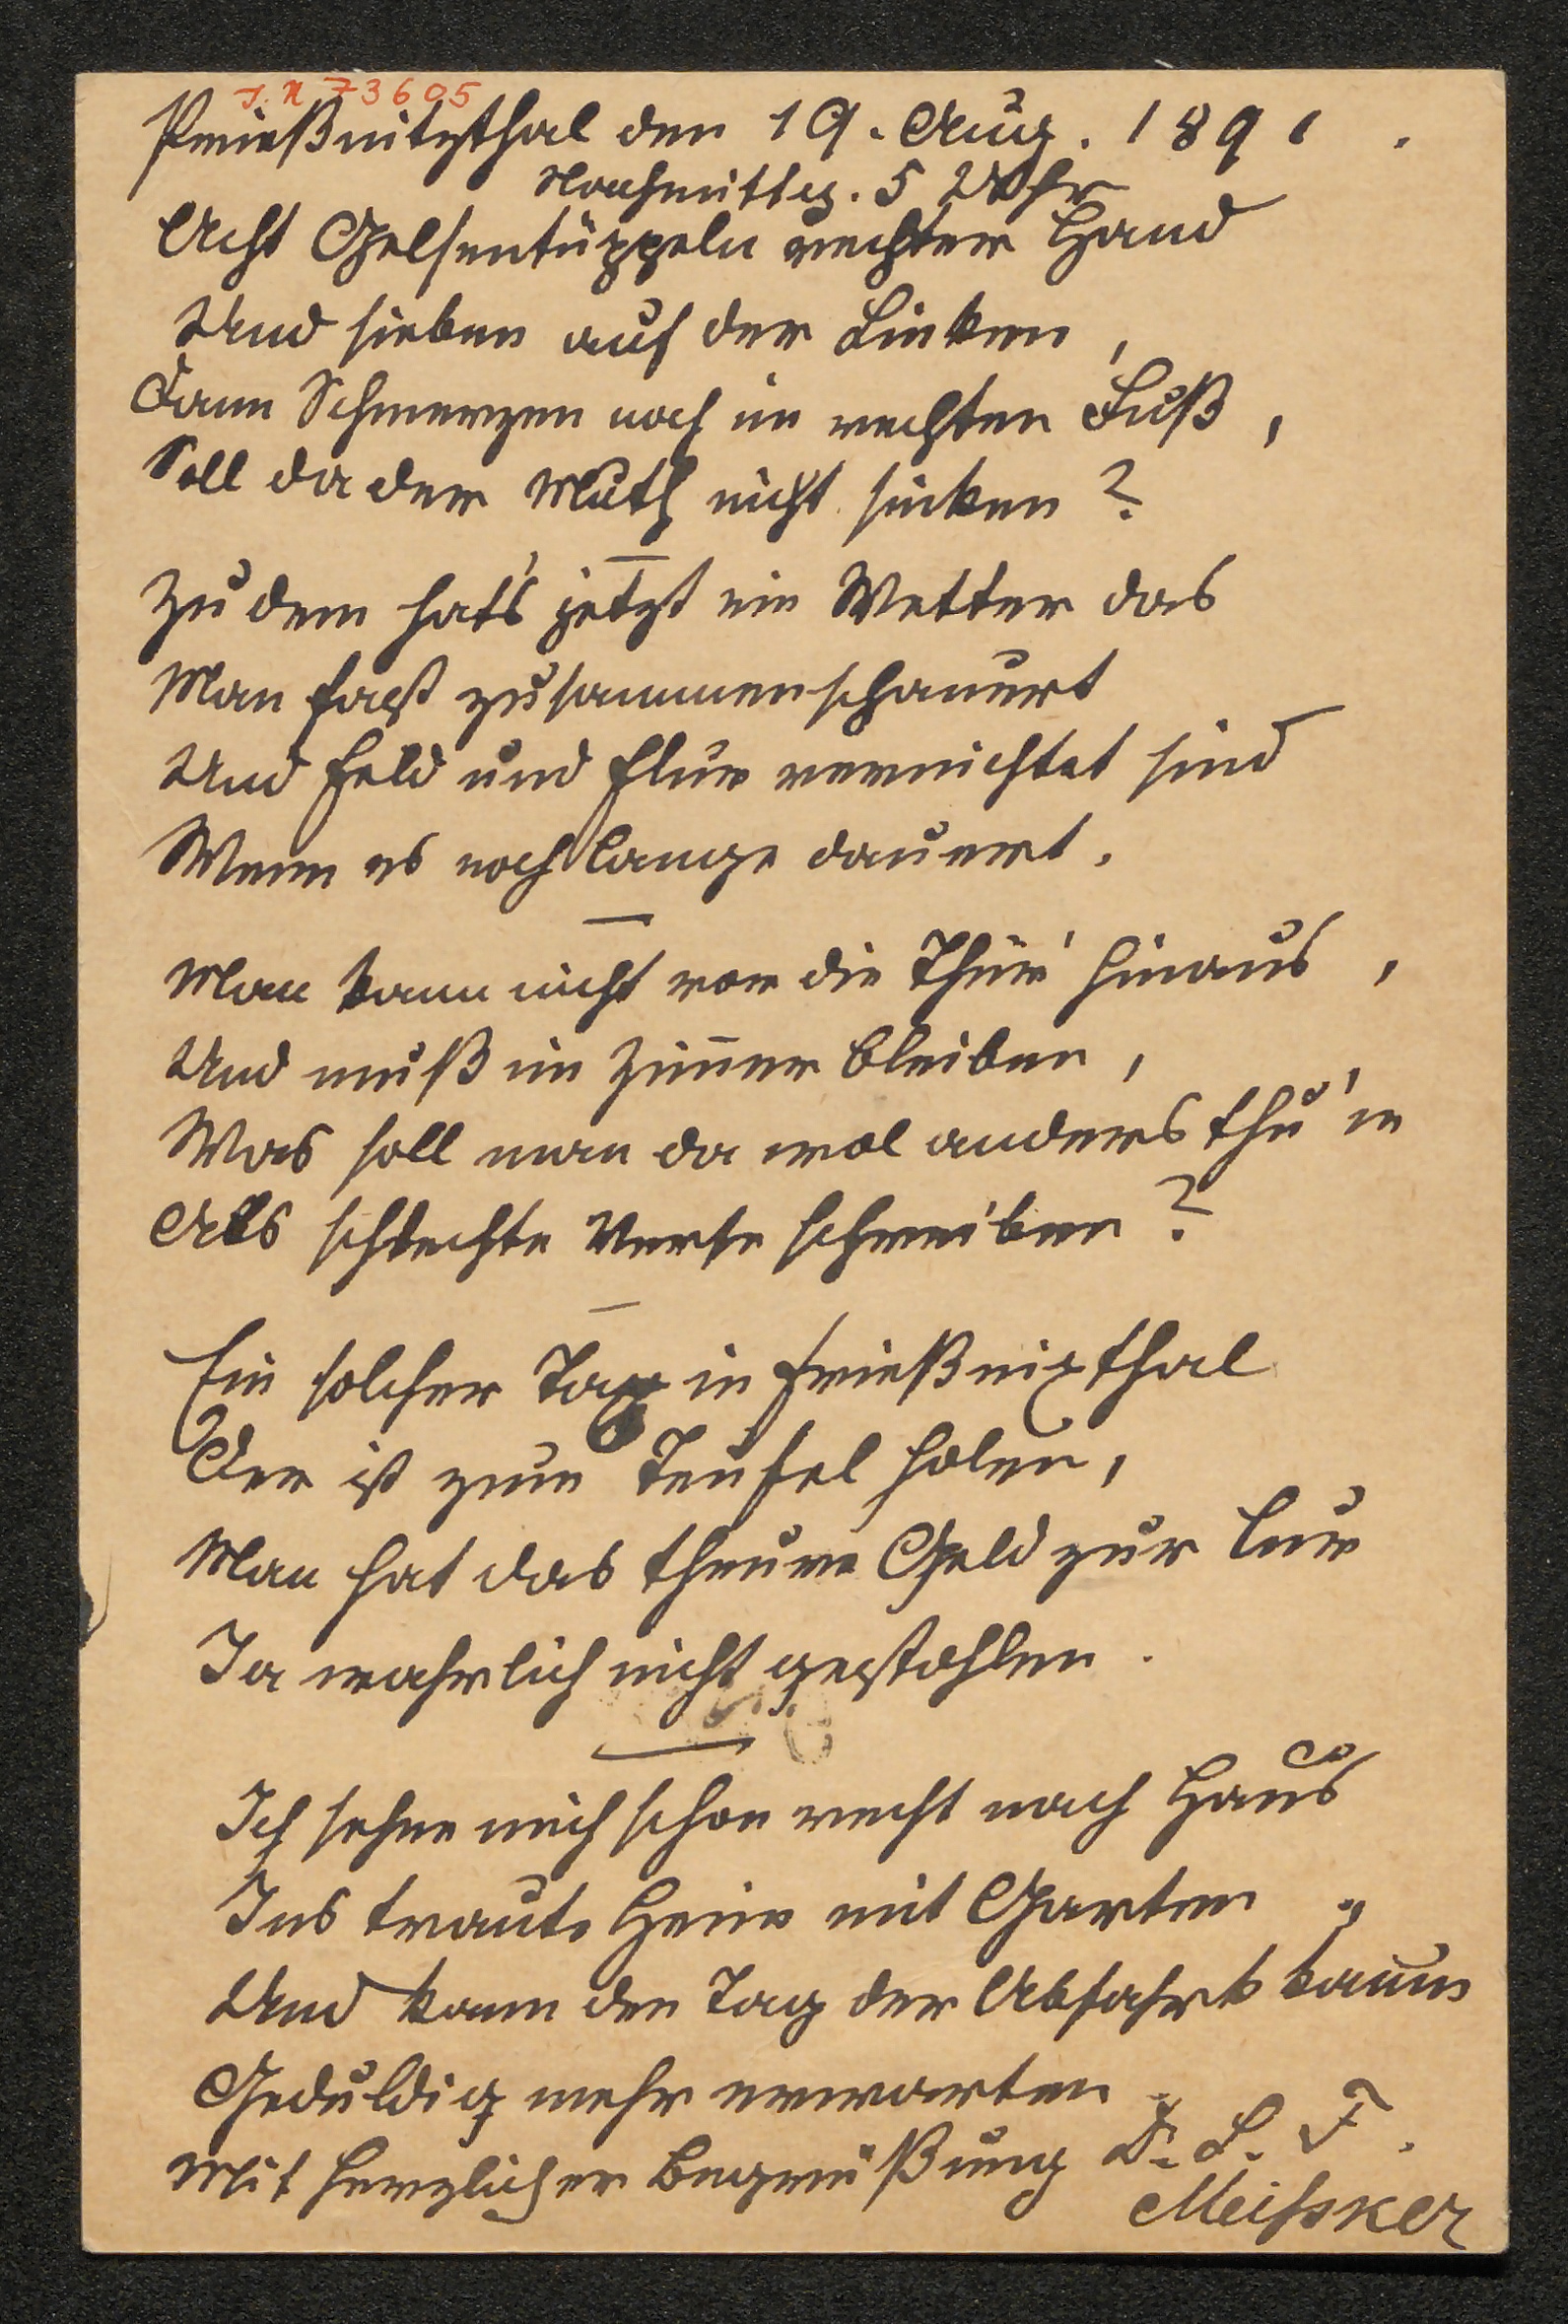 J. N 73605
Prießnitzthal den 19. Aug. 1891.
Nachmittag. 5 Uhr
Acht Gelsentüppeln rechter Hand
Und sieben auf der Linken,
Dann Schmerzen noch im rechten Fuß,
Soll da der Muth nicht sinken?
Zu dem hat's jetzt ein Wetter das
Man fast zusammenschauert
Und Feld und Flur vernichtet sind
Wenn es noch lange dauert.
Man kann nicht vor die Thür' hinaus,
Und muß im Zim̄er bleiben,
Was soll man da wol anders thu'n
Als schlechte Verse schreiben?
Ein solcher Tag in Prießnizthal
Der ist zum Teufel holen,
Man hat das theure Geld zur Cur
Ja wahrlich nicht gestohlen.
Ich sehne mich schon recht nach Haus
Ins traute Heim mit Garten
Und kann den Tag der Abfahrt kaum
Geduldig mehr erwarten
Mit herzlicher Begrüßung D. L. F.
Meißner